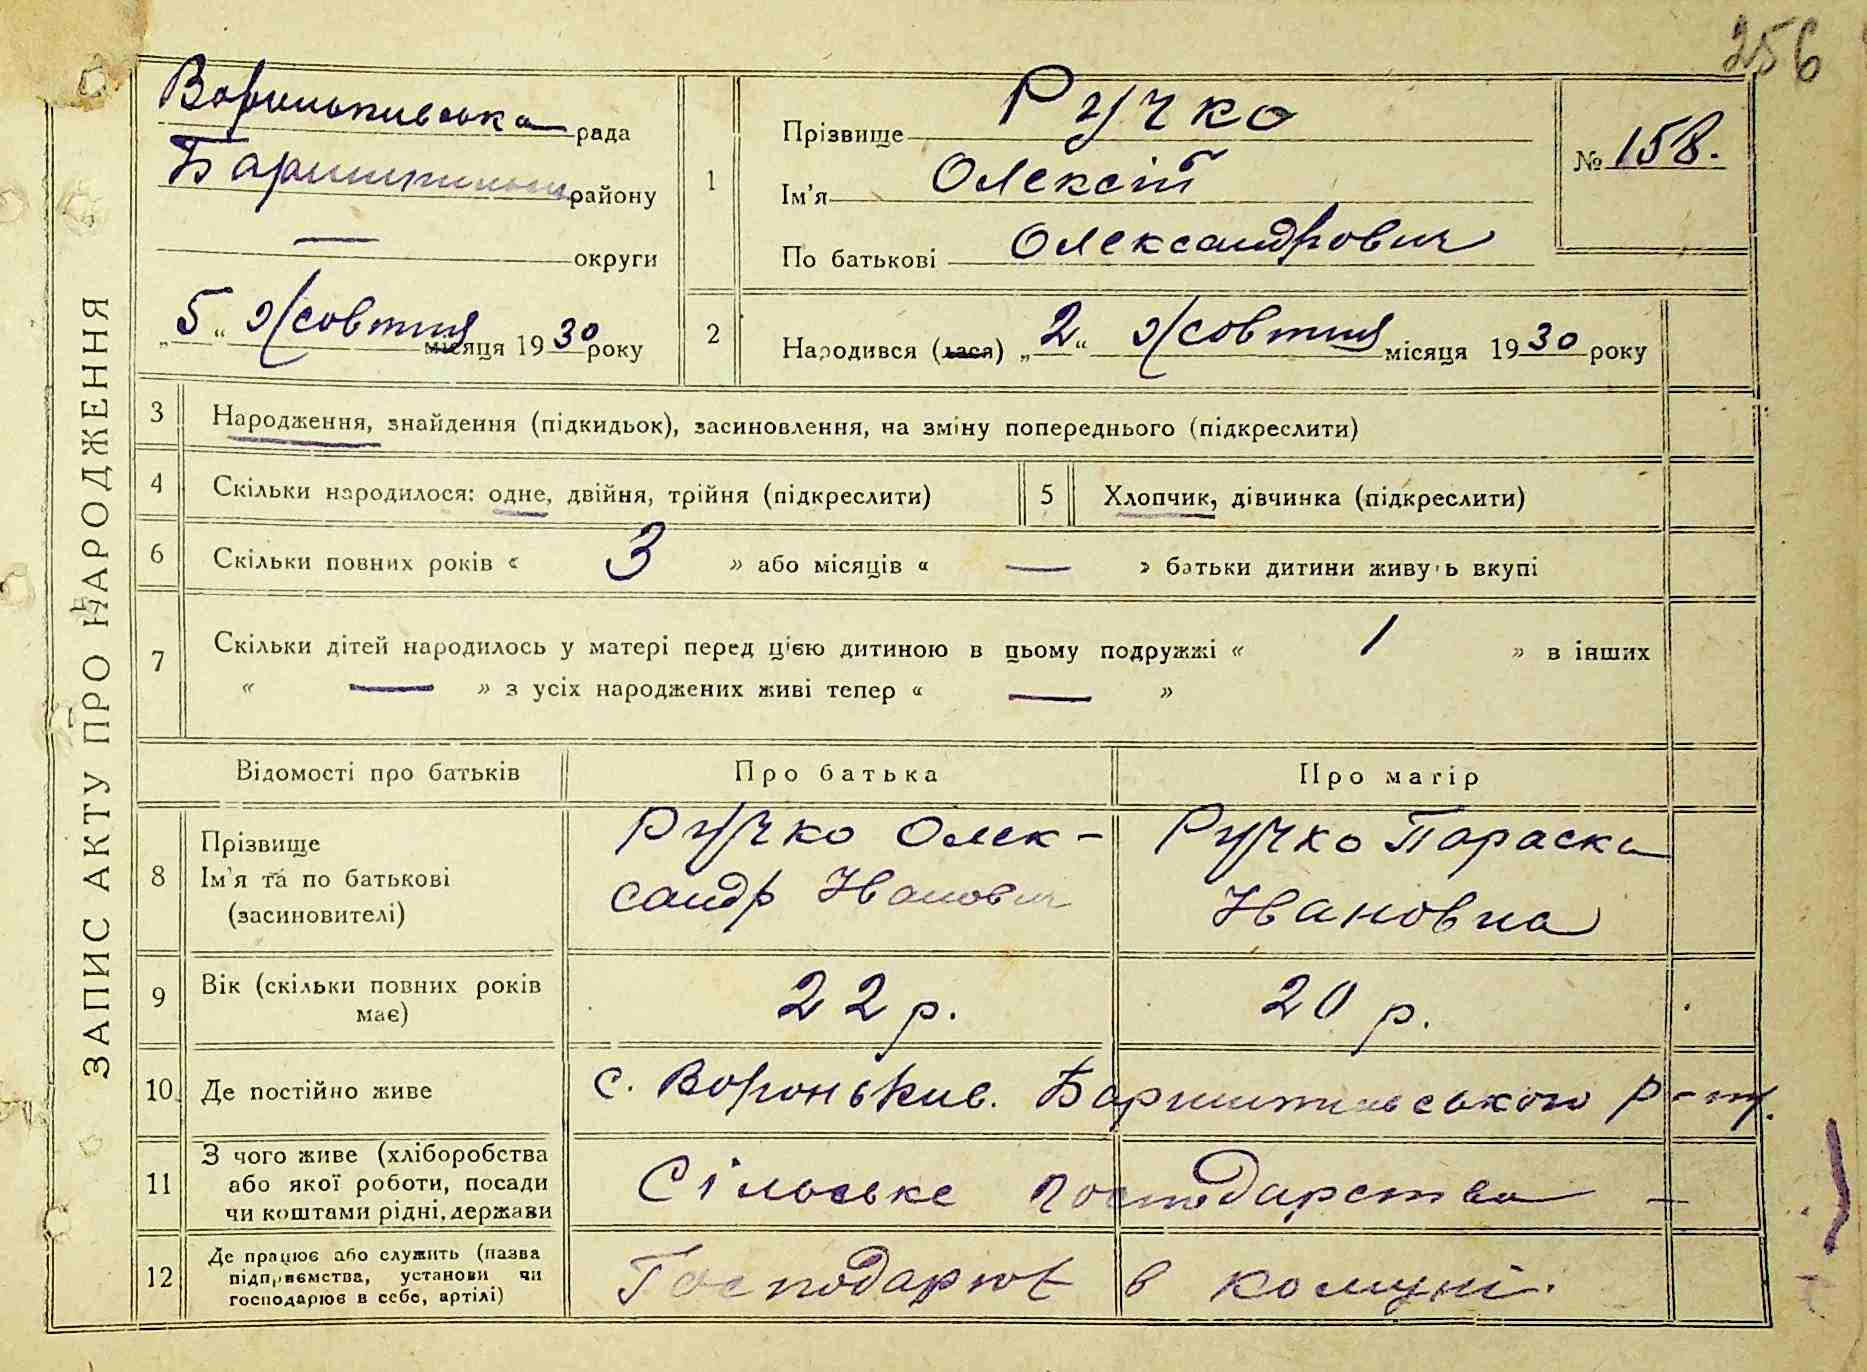 256
ЗАПИС АКТУ ПРО НАРОДЖЕННЯ
Вороньківська рада
Баришпільськ району
— округи
„5“ Жовтня місяця 1930 року
1
Прізвище Ручко
Ім'я Олексій
По батькові Олександрович
№ 158.
2
Народився (лася) „2“ Жовтня місяця 1930 року
3 Народження, знайдення (підкидьок), засиновлення, на зміну попереднього (підкреслити)
4 Скільки народилося: одне, двійня, трійня (підкреслити)
5 Хлопчик, дівчинка (підкреслити)
6 Скільки повних років « 3 » або місяців « — » батьки дитини живуть вкупі
7 Скільки дітей народилось у матері перед цією дитиною в цьому подружжі « 1 » в інших
« — » з усіх народжених живі тепер « — »
Відомості про батьків Про батька Про матір
8 Прізвище
Ім'я та по батькові
(засиновителі)
Ручко Олек-
сандр Іванович
Ручко Параска
Івановна
9 Вік (скільки повних років
має)
22 р. 20 р.
10 Де постійно живе с. Вороньків. Баришпільського р-ну.
11 З чого живе (хліборобства
або якої роботи, посади
чи коштами рідні, держави
Сільське господарство —
12 Де працює або служить (назва
підприємства, установи чи
господарює в себе, артілі)
Господарює в комуні.